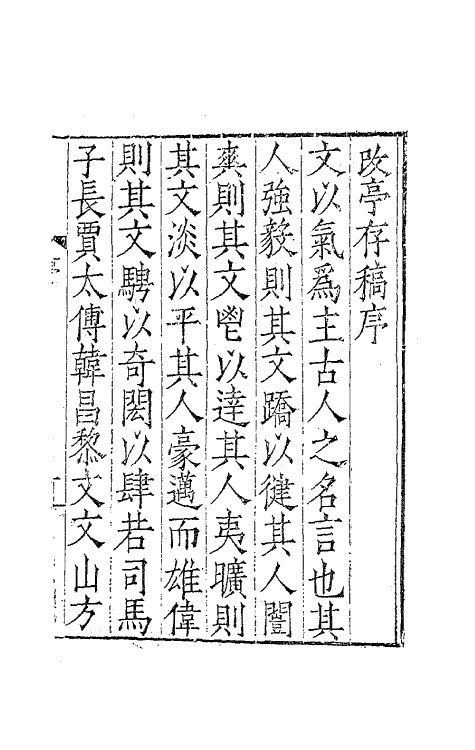 攺亭存稿序
文以氣爲主古人之名言也其
人強毅則其文蹻以徤其人闓
爽則其文鬯以達其人夷曠則
其文淡以平其人豪邁而雄偉
則其文騁以奇閎以肆若司馬
子長賈太傅韓昌黎文文山方